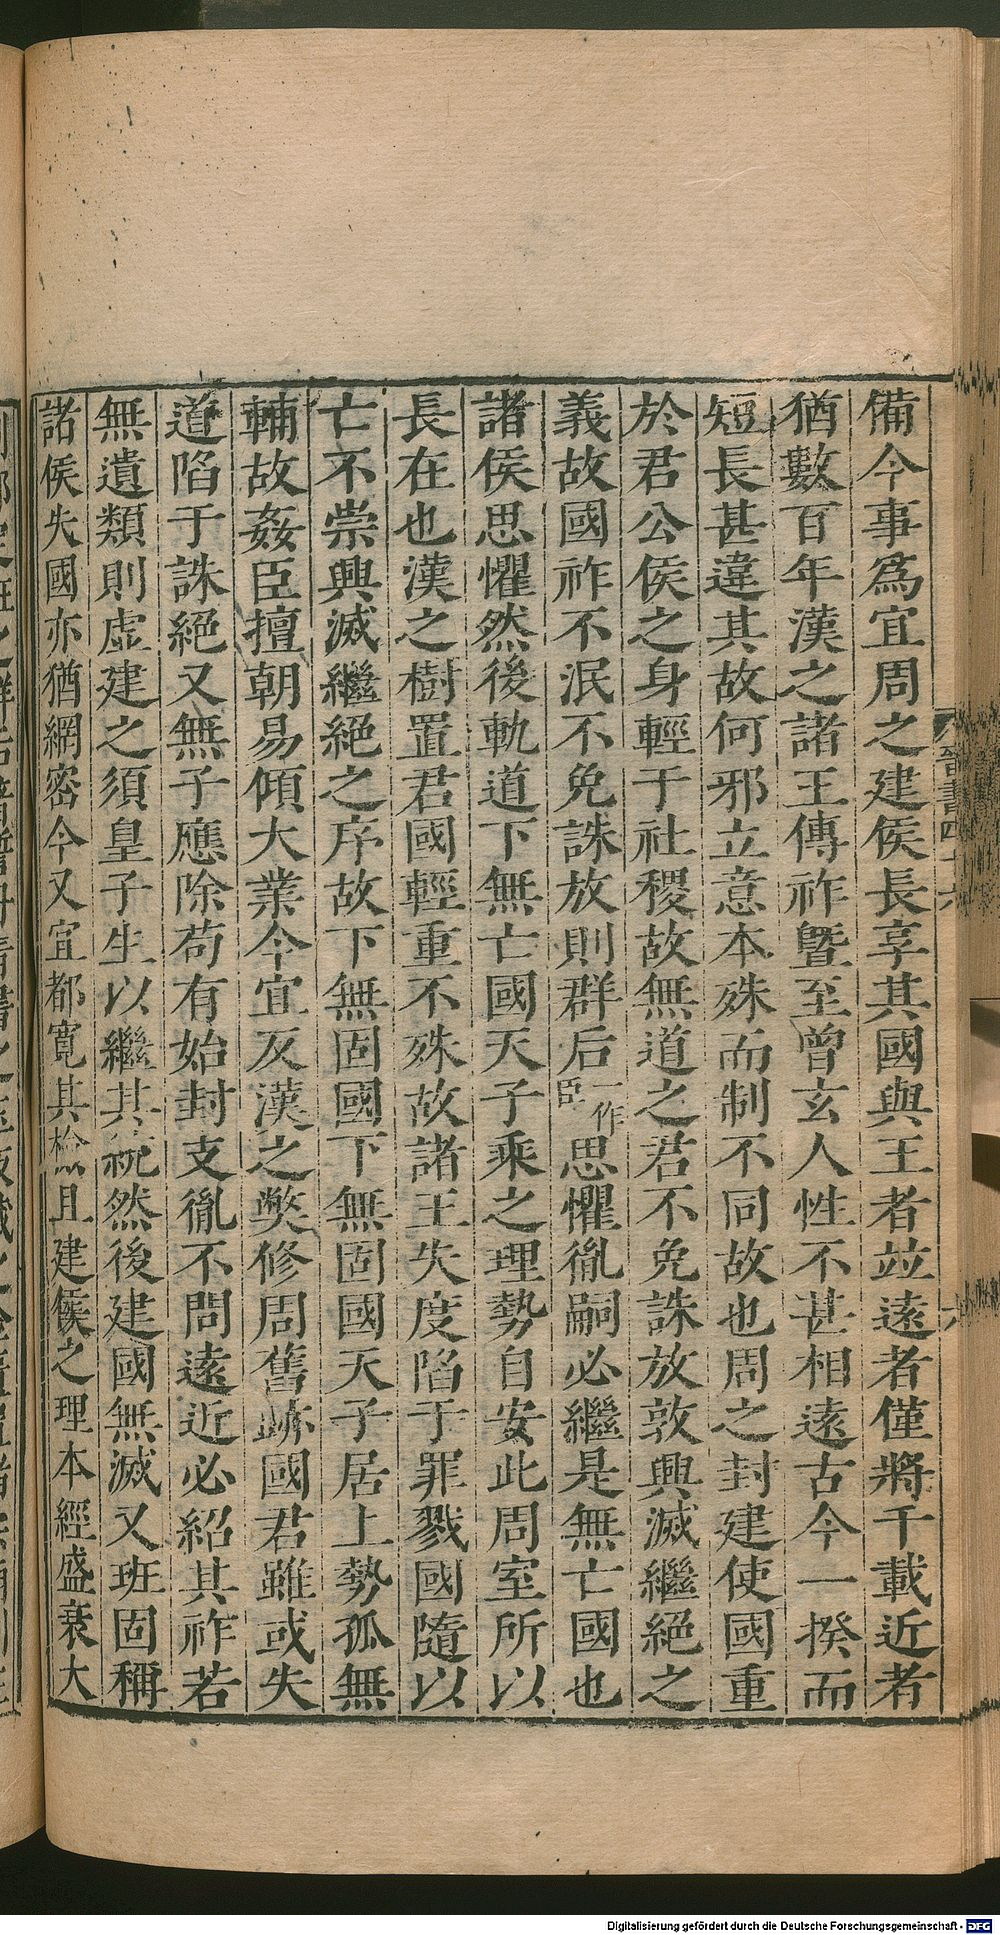 備今事爲宜周之建侯長享其國與王者竝遠者僅將千載近者
猶數百年漢之諸王傳祚曁至曾玄人性不甚相遠古今一揆而
短長甚違其故何邪立意本殊而制不同故也周之封建使國重
於君公侯之身輕于社稷故無道之君不免誅放敦興滅繼絕之
義故國祚不泯不免誅放則群后一作臣思懼胤嗣必繼是無亡國也
諸侯思懼然後軌道下無亡國天子乘之理勢自安此周室所以
長在也漢之樹置君國輕重不殊故諸王失度陷于罪戮國隨以
亡不崇興滅繼絕之序故下無固國下無固國天子居上勢孤無
輔故姦臣擅朝易傾大業今宜反漢之獘修周舊跡國君雖或失
道陷于誅絕又無子應除苟有始封支胤不問遠近必紹其祚若
無遺類則虛建之須皇子生以繼其統然後建國無滅又班固稱
諸侯失國亦猶網密今又宜都寬其檢且建侯之理本經盛衰大
晉書四十六
六
Digitalisierung gefördert durch die Deutsche Forschungsgemeinschaft - DFG